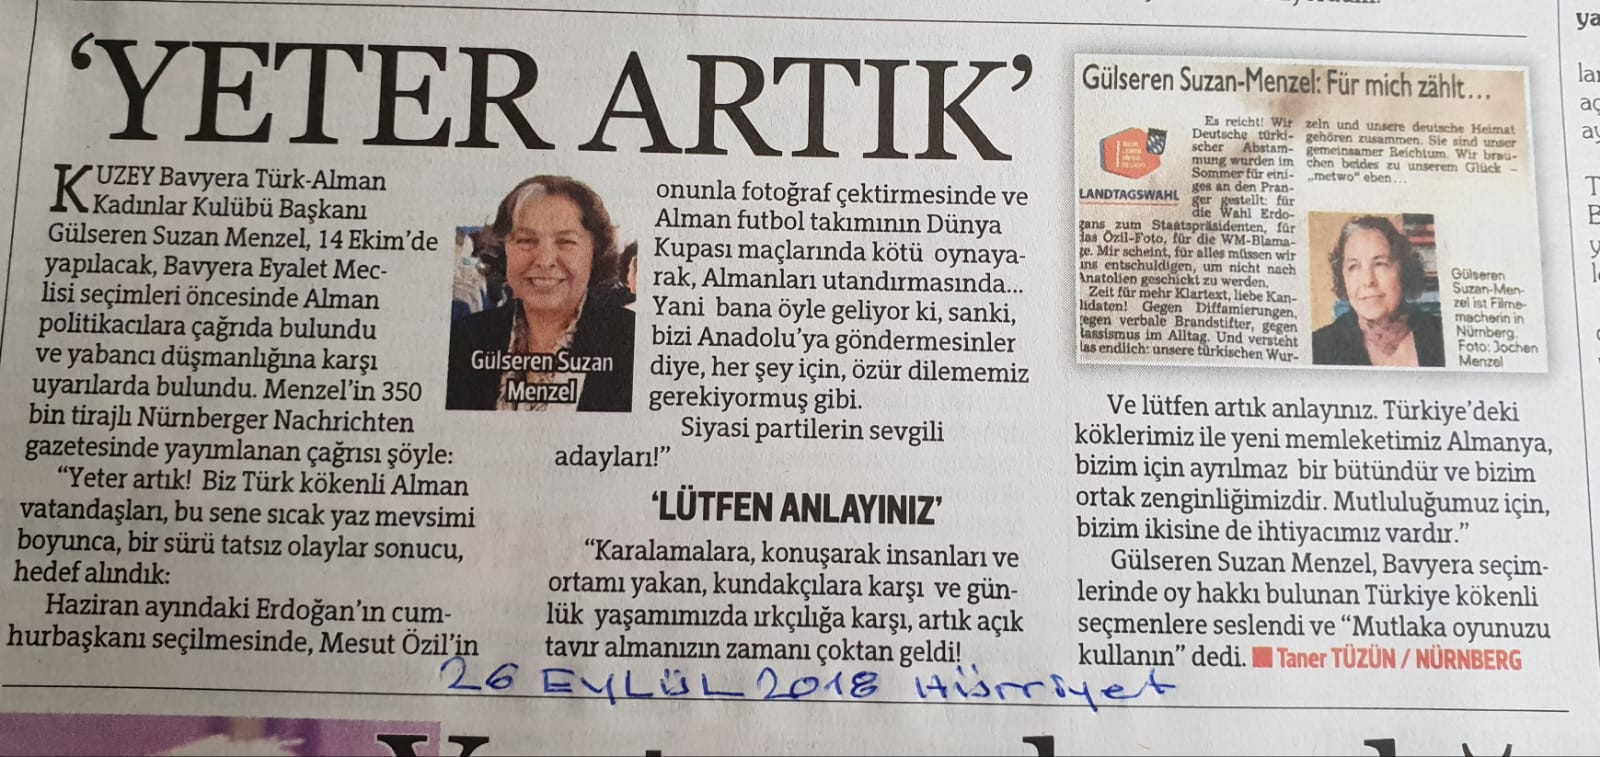 ‘YETER ARTIK’
KUZEY Bavyera Türk-Alman
Kadınlar Kulübü Başkanı
Gülseren Suzan Menzel, 14 Ekim’de
yapılacak, Bavyera Eyalet Mec-
lisi seçimleri öncesinde Alman
politikacılara çağrıda bulundu
ve yabancı düşmanlığına karşı
uyarılarda bulundu. Menzel’in 350
bin tirajlı Nürnberger Nachrichten
gazetesinde yayımlanan çağrısı şöyle:
“Yeter artık! Biz Türk kökenli Alman
vatandaşları, bu sene sıcak yaz mevsimi
boyunca, bir sürü tatsız olaylar sonucu,
hedef alındık:
Haziran ayındaki Erdoğan’ın cum-
hurbaşkanı seçilmesinde, Mesut Özil’in
Gülseren Suzan
Menzel
onunla fotoğraf çektirmesinde ve
Alman futbol takımının Dünya
Kupası maçlarında kötü oynaya-
rak, Almanları utandırmasında...
Yani bana öyle geliyor ki, sanki,
bizi Anadolu’ya göndermesinler
diye, her şey için, özür dilememiz
gerekiyormuş gibi.
Siyasi partilerin sevgili
adayları!”
‘LÜTFEN ANLAYINIZ’
“Karalamalara, konuşarak insanları ve
ortamı yakan, kundakçılara karşı ve gün-
lük yaşamımızda ırkçılığa karşı, artık açık
tavır almanızın zamanı çoktan geldi!
Gülseren Suzan-Menzel: Für mich zählt...
LANDTAGSWAHL
Es reicht! Wir
Deutsche türki-
scher Abstam-
mung wurden im
Sommer für eini-
ges an den Pran-
ger gestellt: für
die Wahl Erdo-
gans zum Staatspräsidenten, für
das Özil-Foto, für die WM-Blama-
ge. Mir scheint, für alles müssen wir
uns entschuldigen, um nicht nach
Anatolien geschickt zu werden.
Zeit für mehr Klartext, liebe Kan-
didaten! Gegen Diffamierungen,
gegen verbale Brandstifter, gegen
Rassismus im Alltag. Und versteht
das endlich: unsere türkischen Wur-
zeln und unsere deutsche Heimat
gehören zusammen. Sie sind unser
gemeinsamer Reichtum. Wir brau-
chen beides zu unserem Glück –
„metwo“ eben...
Gülseren
Suzan-Men-
zel ist Filme-
macherin in
Nürnberg.
Foto: Jochen
Menzel
Ve lütfen artık anlayınız. Türkiye’deki
köklerimiz ile yeni memleketimiz Almanya,
bizim için ayrılmaz bir bütündür ve bizim
ortak zenginliğimizdir. Mutluluğumuz için,
bizim ikisine de ihtiyacımız vardır.”
Gülseren Suzan Menzel, Bavyera seçim-
lerinde oy hakkı bulunan Türkiye kökenli
seçmenlere seslendi ve “Mutlaka oyunuzu
kullanın” dedi. Taner TÜZÜN / NÜRNBERG
26 EYLÜL 2018 Hürriyet